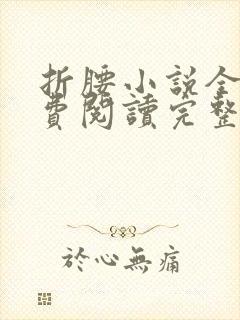 折腰小說全
費閱讀完整
於心無痛